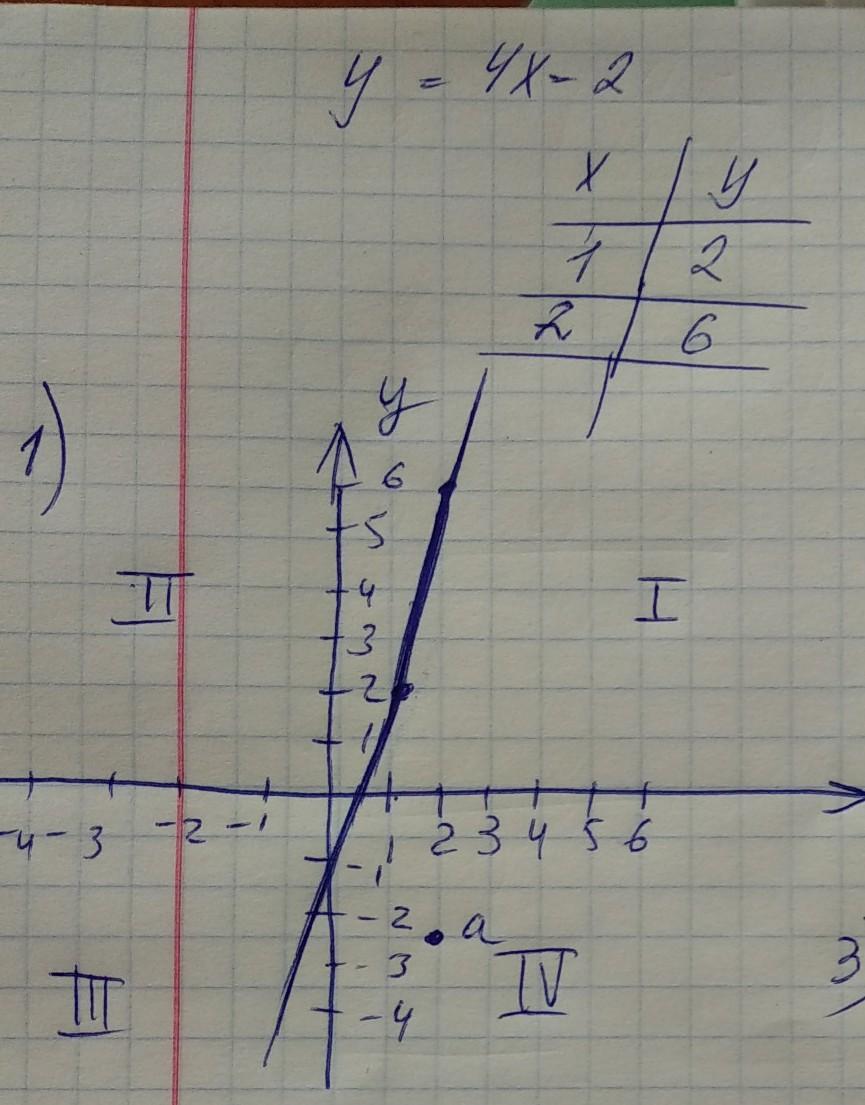 y = 4x - 2
x y
1 2
2 6
1)
y
6
5
II 4 I
3
2
1
-4 -3 -2 -1 1 2 3 4 5 6
-1
-2 a
-3
III IV 3)
-4